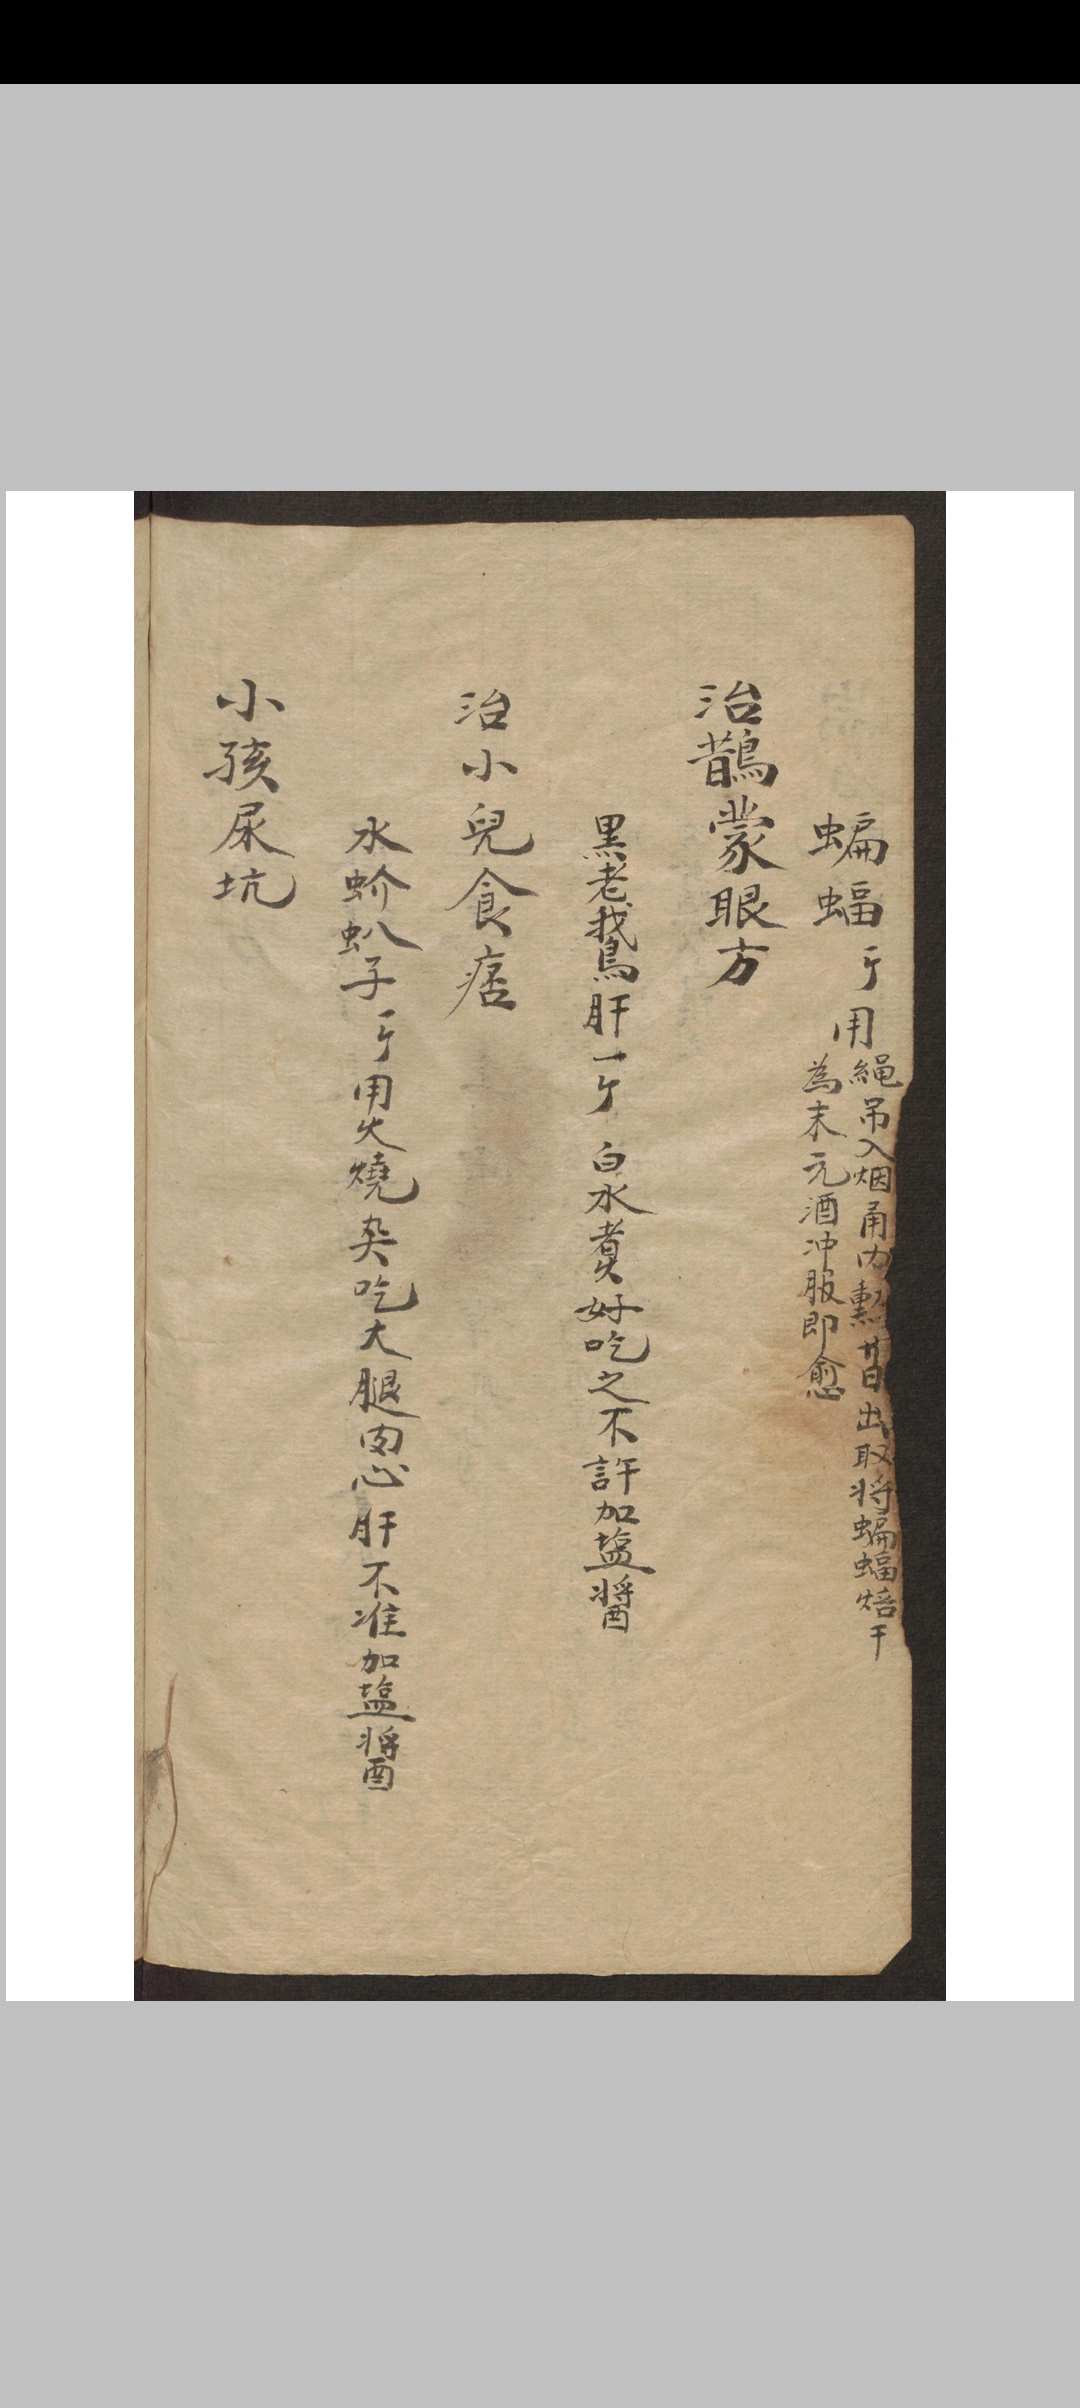 蝙蝠亇用
繩吊入烟甬內勲廿日出取将蝙蝠焙干
為末元酒冲服即愈
治鵲蒙眼方
黑老鵞肝一亇 白水煑好吃之不許加塩醬
治小兒食痞
水蚧虯子一亇用火燒 吃大腿肉心肝不准加塩醬
小孩尿坑